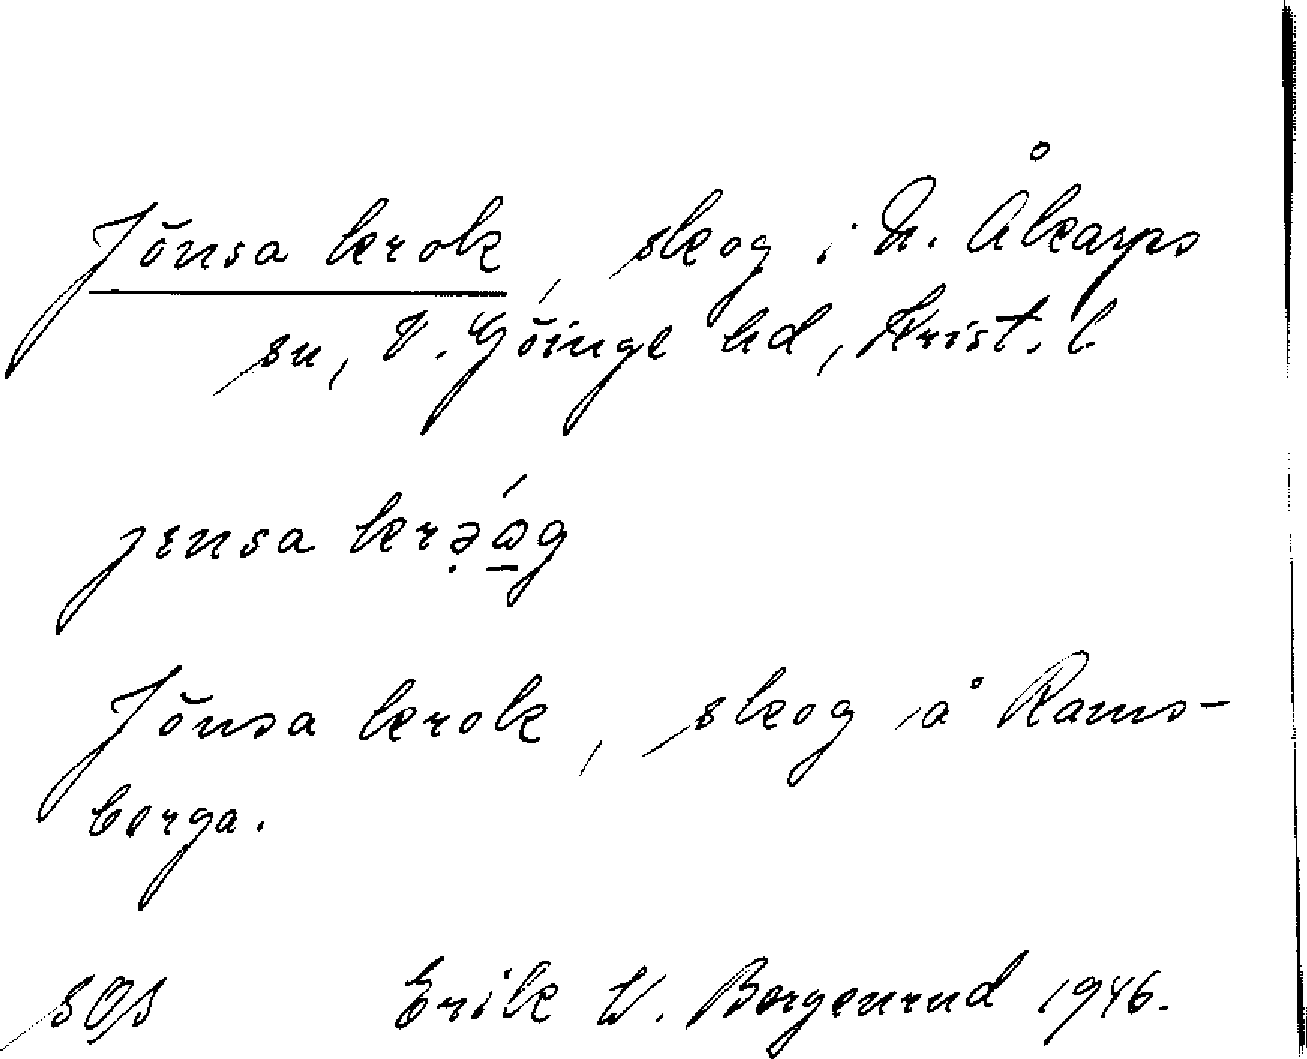 Jönsa krok, skog i N. Åkarps
sn, V. Göinge hd, Krist. l
jɛnsa krə̣ώ̲g
Jönsa krok, skog å Rams-
berga.
sOs Erik W. Borgenrud 1946.